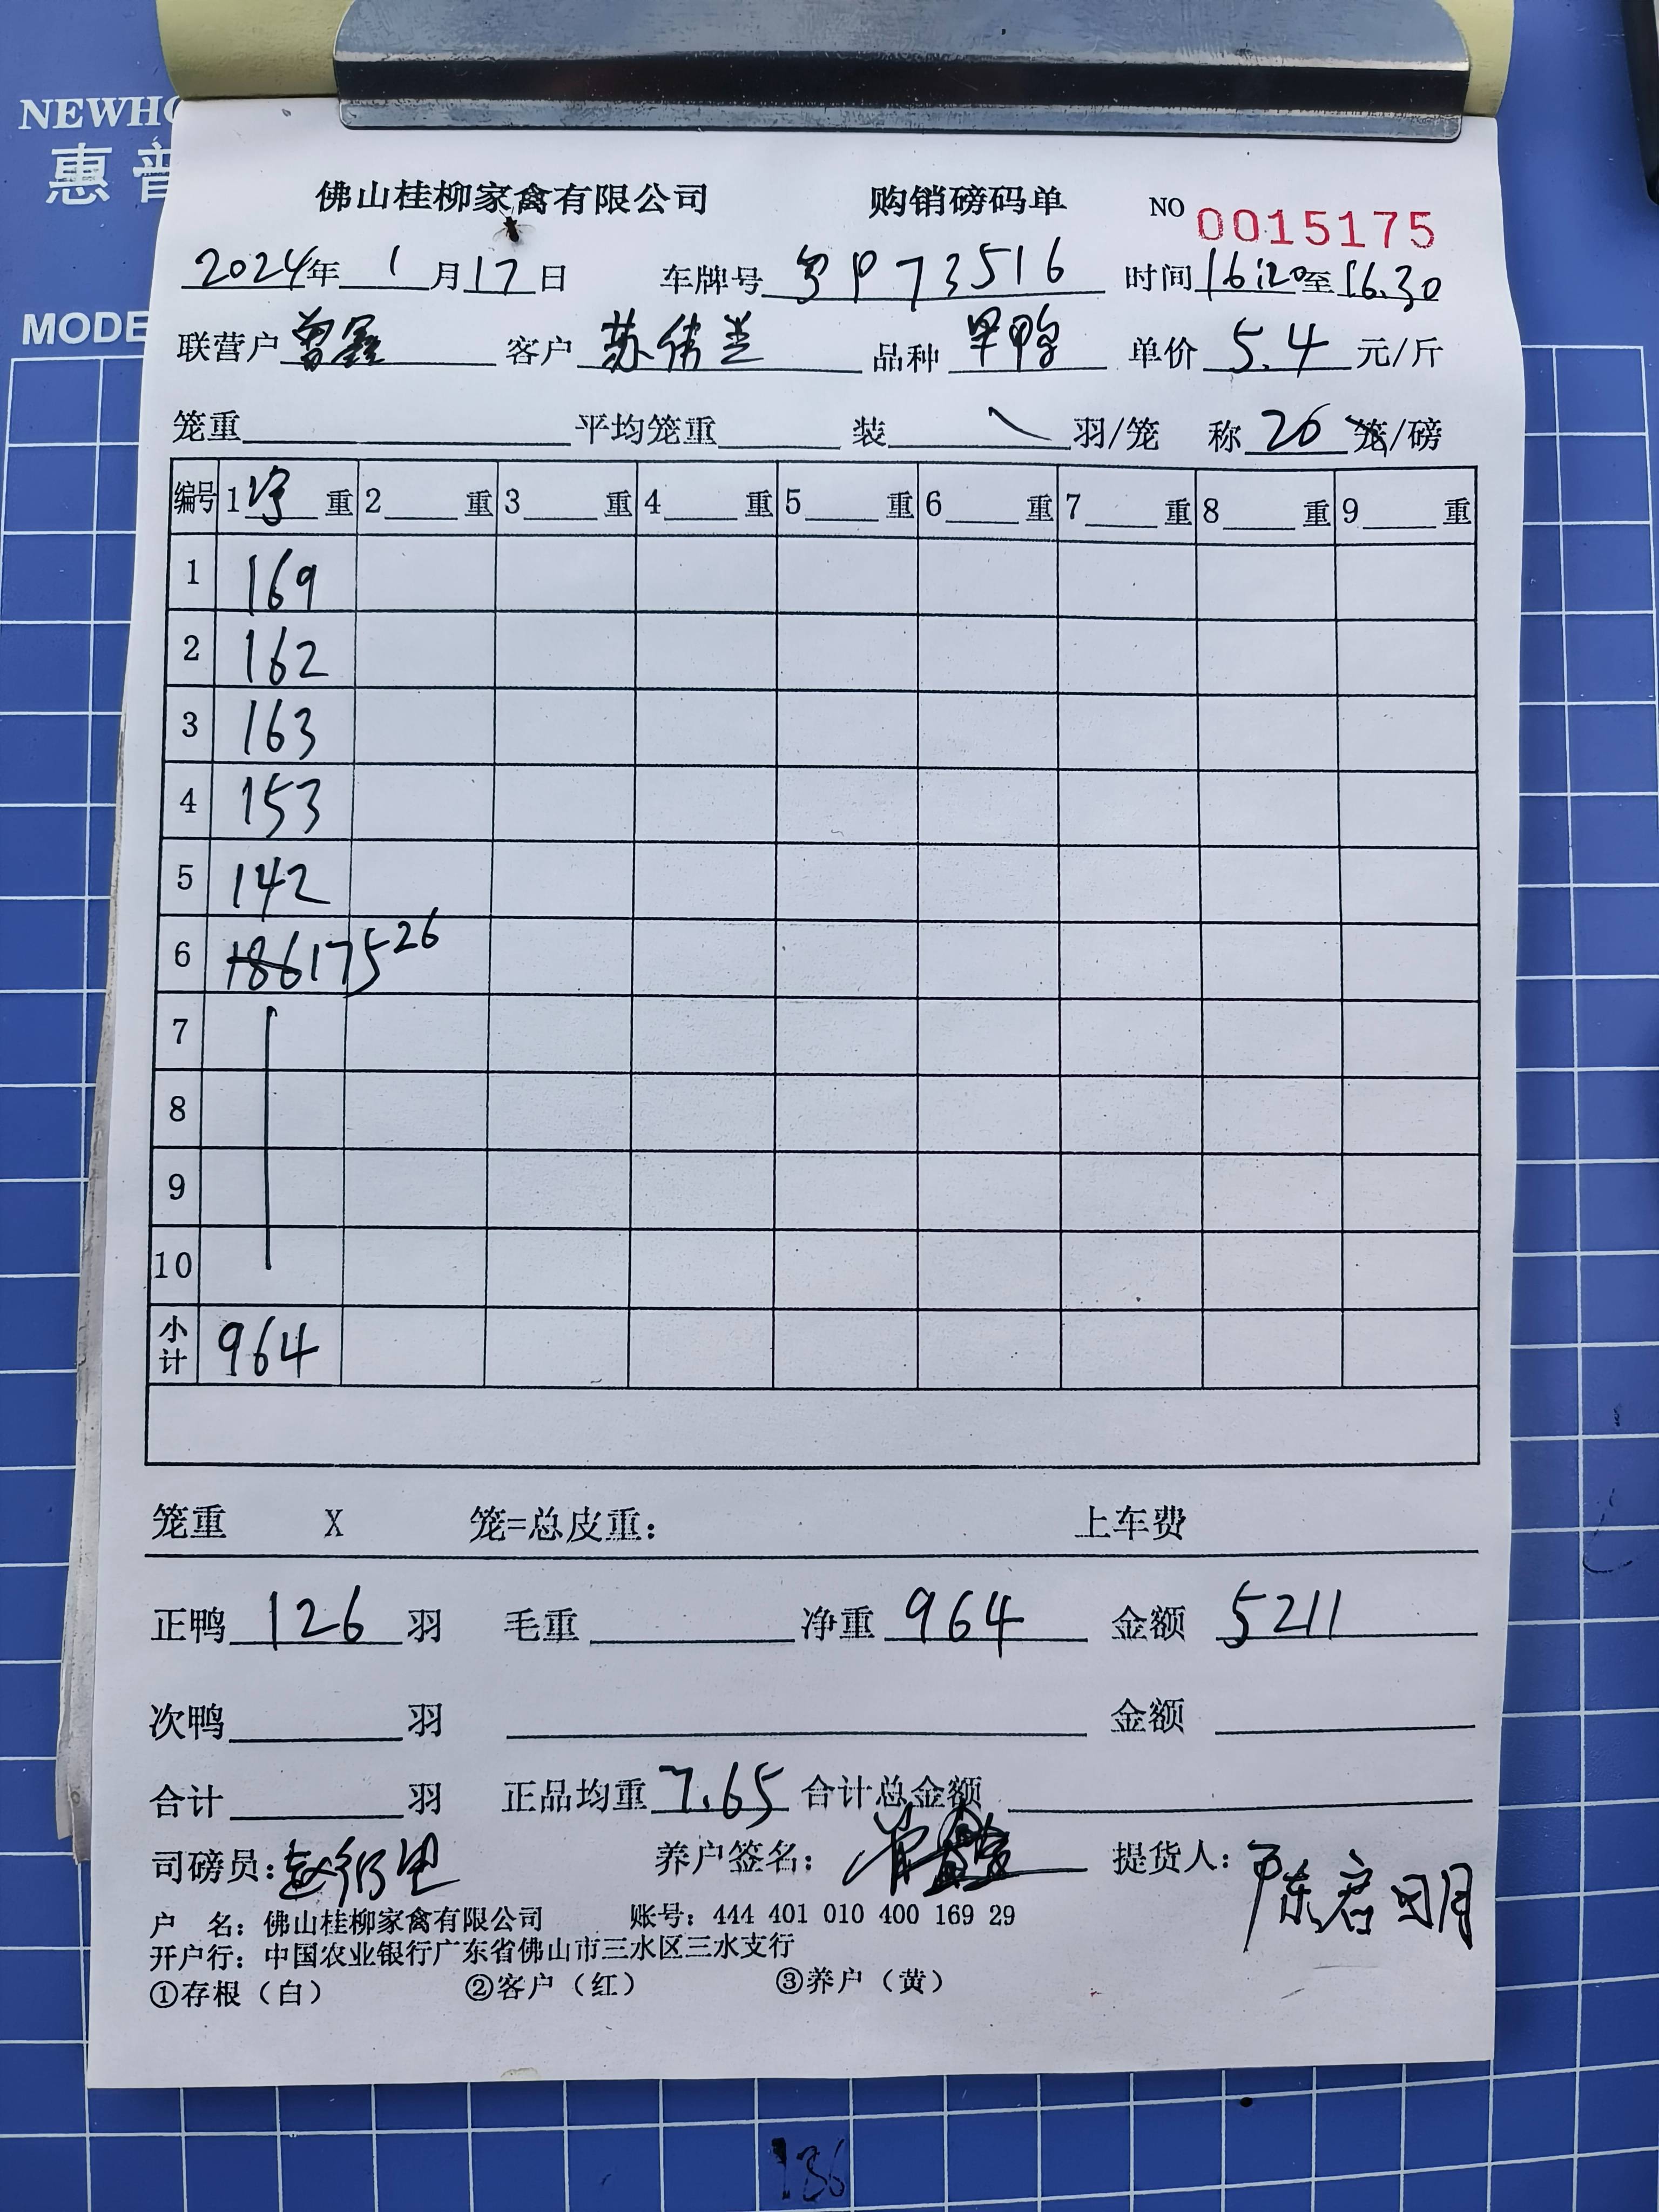 NEWHO
惠普
MODE
佛山桂柳家禽有限公司 购销磅码单 NO 0015175
2024年 1 月 17 日 车牌号 粤P73516 时间 16:20 至 16.30
联营户 曾鑫 客户 苏伟兰 品种 旱鸭 单价 5.4 元/斤
笼重 平均笼重 装 羽/笼 称 20 笼/磅
编号 1 净 重 2 重 3 重 4 重 5 重 6 重 7 重 8 重 9 重
1 169
2 162
3 163
4 153
5 142
6 186 175 26
7
8
9
10
小计 964
笼重 X 笼=总皮重: 上车费
正鸭 126 羽 毛重 净重 964 金额 5211
次鸭 羽 金额
合计 羽 正品均重 7.65 合计总金额
司磅员: 养户签名: 提货人: 陈启明
户 名: 佛山桂柳家禽有限公司 账号: 444 401 010 400 169 29
开户行: 中国农业银行广东省佛山市三水区三水支行
①存根(白) ②客户(红) ③养户(黄)